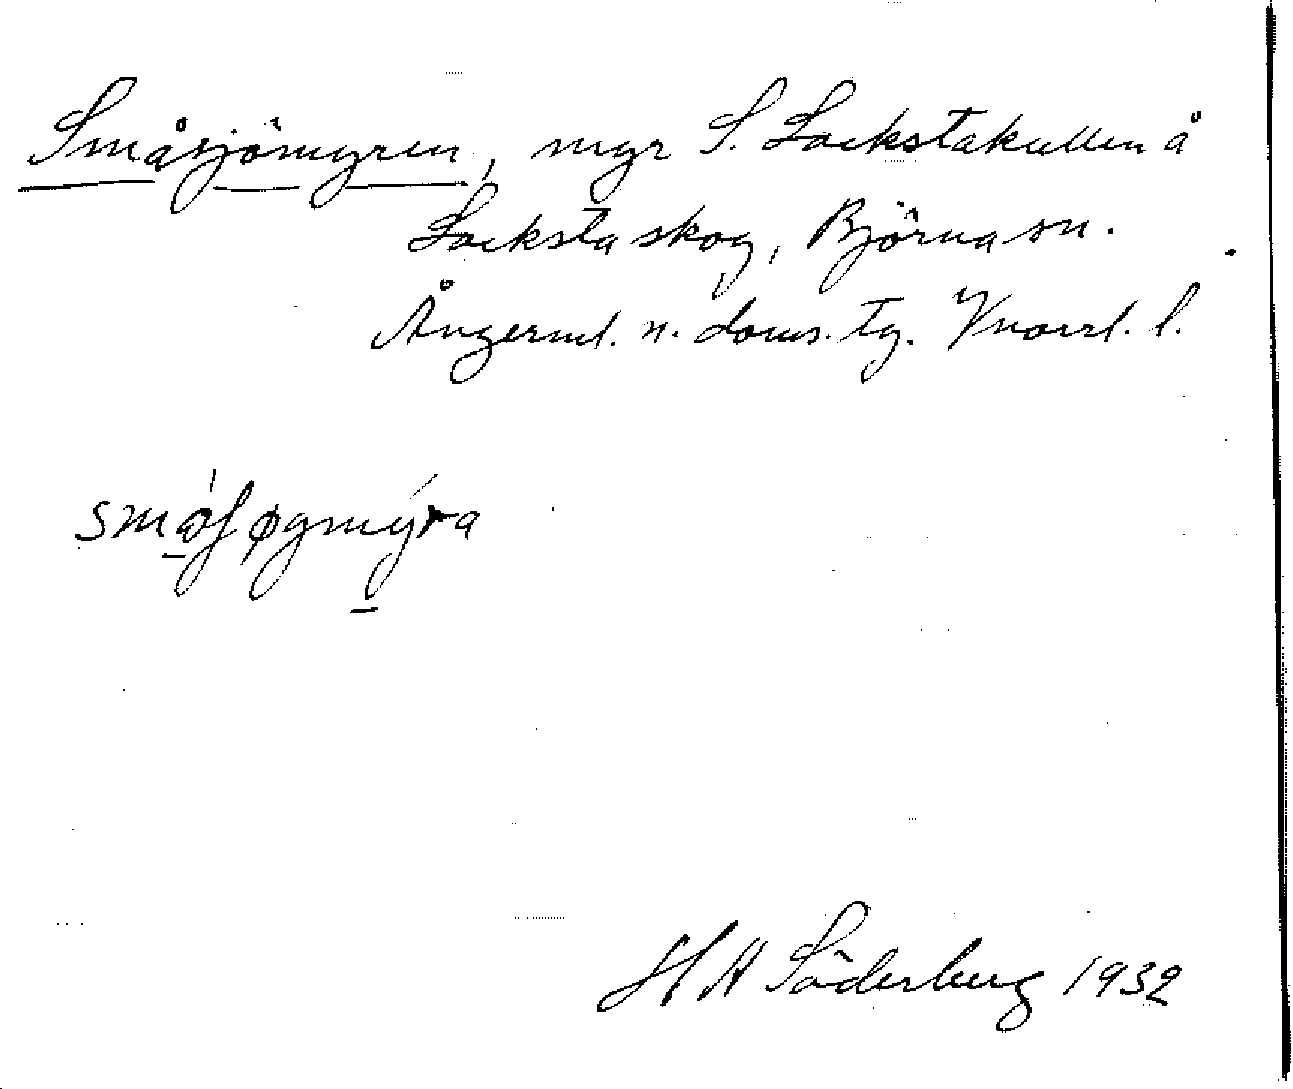 Småsjömyren, myr S. Lockstakullen å
Locksta skog, Björna sn.
Ångerml. n. doms. tg. Vnorrl. l.
H A Söderberg 1932